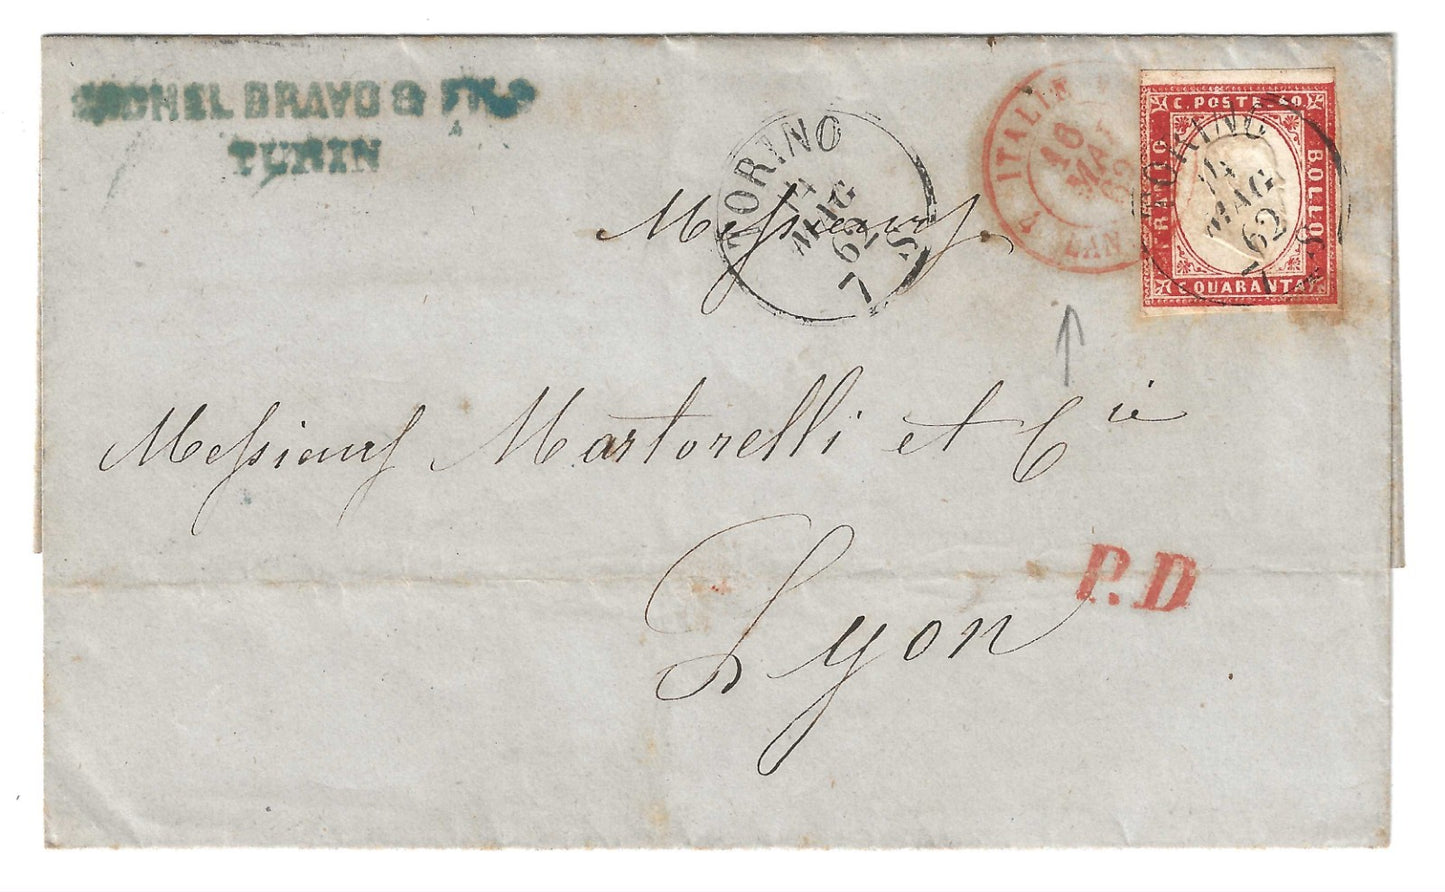 BRAVO & FILS
TURIN
TORINO
14
MAG
62
7 S
ITALIE
16
MAI
62
C. POSTE 40
FRANCO
BOLLO
C. QUARANTA
TORINO
14
MAG
62
7 S
Messieurs
Messieurs Martorelli et Cie
Lyon
P.D